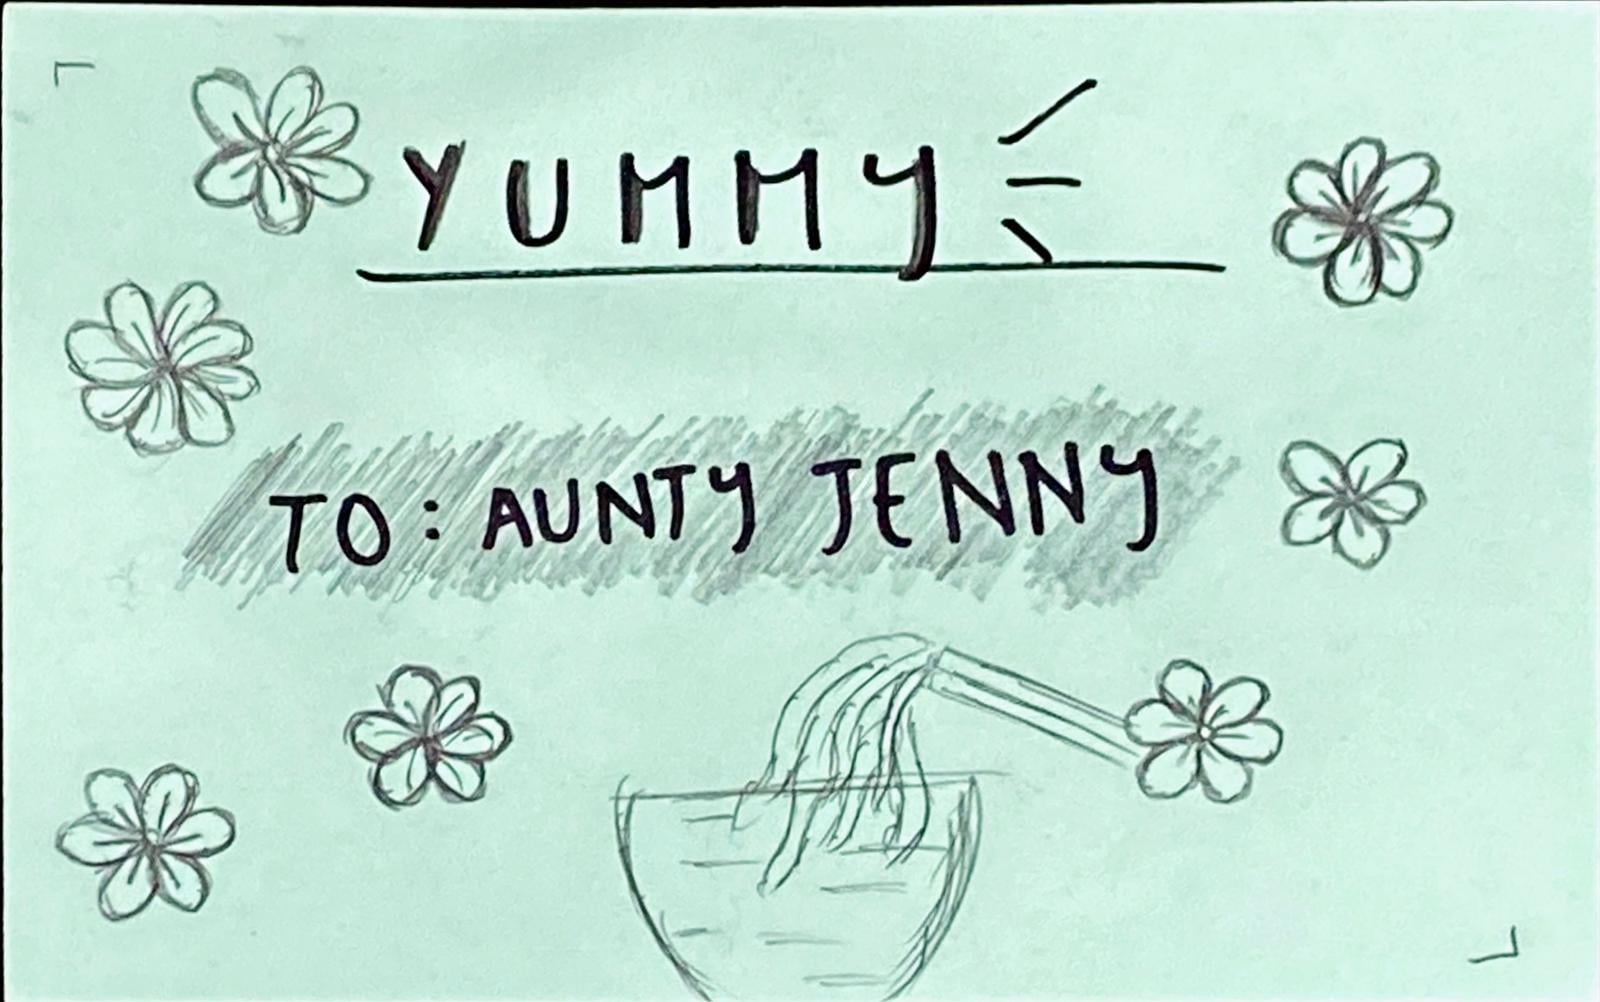 YUMMY
TO: AUNTY JENNY